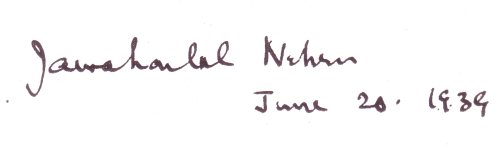 Jawaharlal Nehru
June 20. 1939